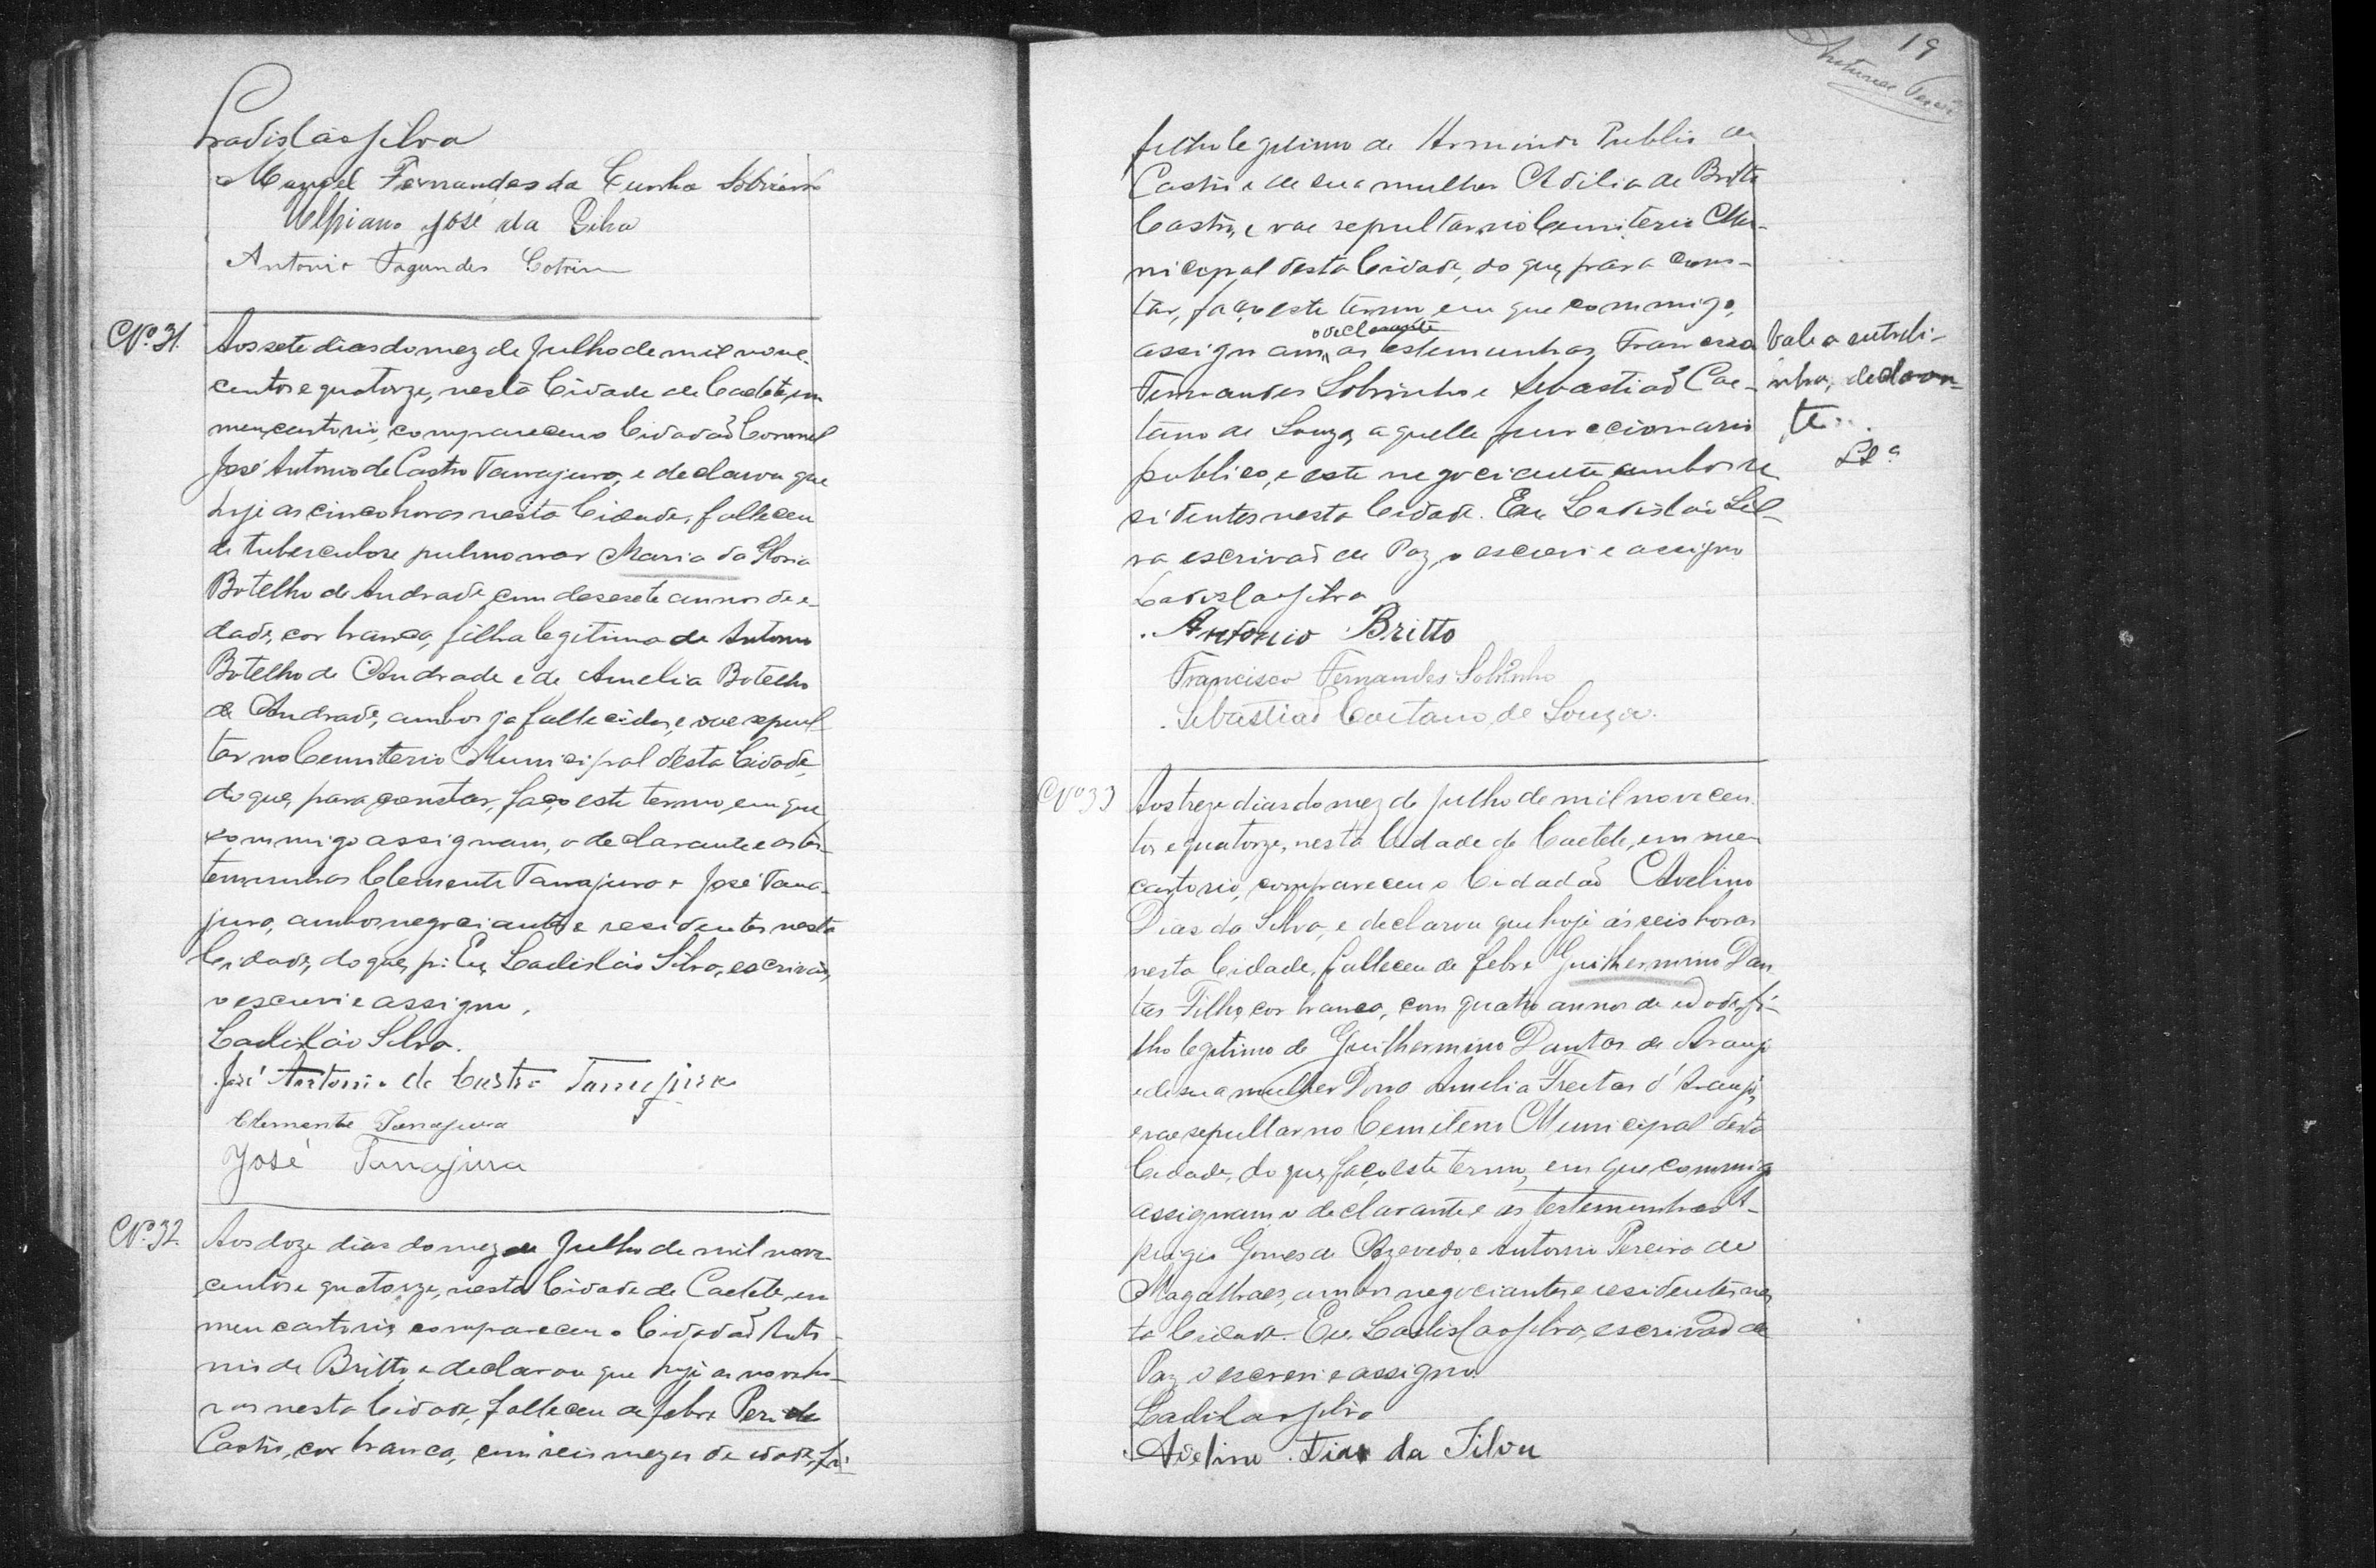 Ladislao Silva
Manoel Fernandes da Cunha Sobrinho
Ulpiano José da Silva
Antonio Fagundes Cotrim
Nº 31.
Aos sete dias do mez de Julho de mil nove-
centos e quatorze, nesta Cidade de Caeteté, em
meu cartorio, compareceu o Cidadaõ Coronel
José Antonio de Castro Tanajura, e declarou que
hoje as cinco horas nesta Cidade, falleceu
de tuberculose pulmonar Maria da Gloria
Botelho de Andrade com desesete annos de e-
dade, cor branca, filha legitima de Antonio
Botelho de Andrade e de Amelia Botelho
de Andrade, ambos já fallecidos, e vae sepul-
tar no Cemiterio Municipal desta Cidade,
do que, para constar, faço este termo, em que
commigo assignam, o declarante e as tes-
temunhas Clemente Tanajura e José Tana-
jura, ambos negociantes e residentes nesta
Cidade, do que, Eu, Ladisláo Silva, escrivaõ,
o escrevi e assigno.
Ladisláo Silva.
José Antonio de Castro Tanajura
Clemente Tanajura
José Tanajura
Nº 32.
Aos doze dias do mez de Julho de mil nove-
centos e quatorze, nesta Cidade de Caeteté, em
meu cartorio, compareceu o Cidadaõ Anto-
nio de Britto, e declarou que hoje as nove ho-
ras nesta Cidade, falleceu de febre Peri de
Castro, cor branca, com seis mezes de idade, fi-
19
filho legitimo de Arminio Publio de
Castro e de sua mulher Adilia de Britto
Castro, e vae sepultar no Cemiterio Mu-
nicipal desta Cidade, do que, para cons-
tar, faço este termo, em que commigo,
o declarante
assignam, as testemunhas Francisco
Fernandes Sobrinho e Sebastiaõ Cae-
tano de Souza, aquelle funccionario
publico, e este negociante ambos re
sidentes nesta Cidade. Eu Ladislao Sil-
va escrivaõ de Paz, o escrevi e assigno
Ladislao Silva
Antonio Britto
Francisco Fernandes Sobrinho
Sebastiaõ Caetano de Souza.
Vale a entreli-
nha, declaran-
te.
Nº 33
Aos treze dias do mez de Julho de mil novecen
tos e quatorze, nesta Cidade de Caeteté, em meu
cartorio, compareceu o Cidadaõ Avelino
Dias da Silva, e declarou que hoje ás seis horas
nesta Cidade, falleceu de febre Guilhermino Dan
tas Filho, cor branca, com quatro annos de idade, fi-
lho legitimo de Guilhermino Dantas de Araujo
e de sua mulher Dona Amelia Freitas d'Araujo,
e vae sepultar no Cemiterio Municipal desta
Cidade, do que, faço este termo, em que commigo
assignam, o declarante e as testemunhas A-
prigio Gomes de Azevedo e Antonio Pereira de
Magalhaes, ambos negociantes e residentes nes
ta Cidade. Eu Ladislao Silva, escrivaõ de
Paz o escrevi e assigno.
Ladislao Silva
Avelino Dias da Silva